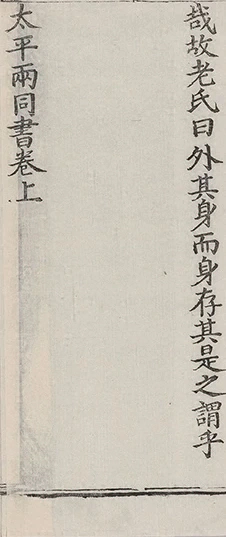 哉故老氏曰外其身而身存其是之謂乎
太平兩同書卷上